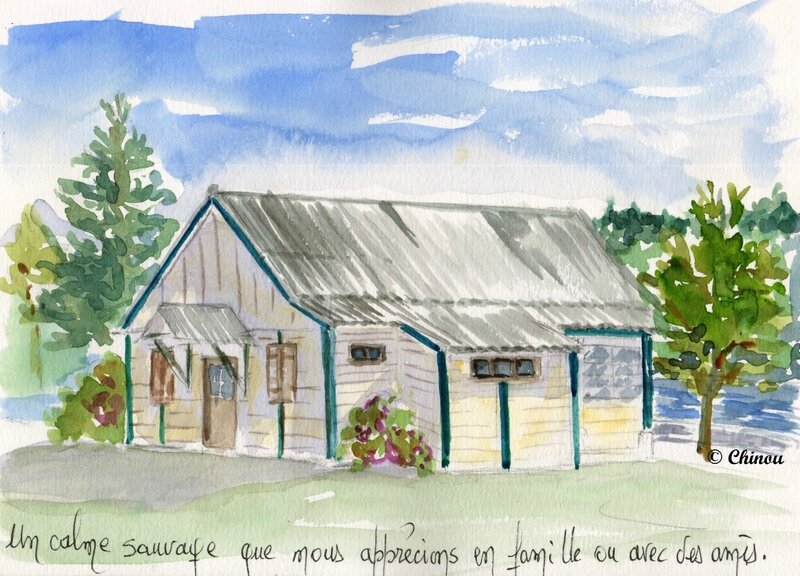 © Chinou
Un calme sauvage que nous apprécions en famille ou avec des amis.